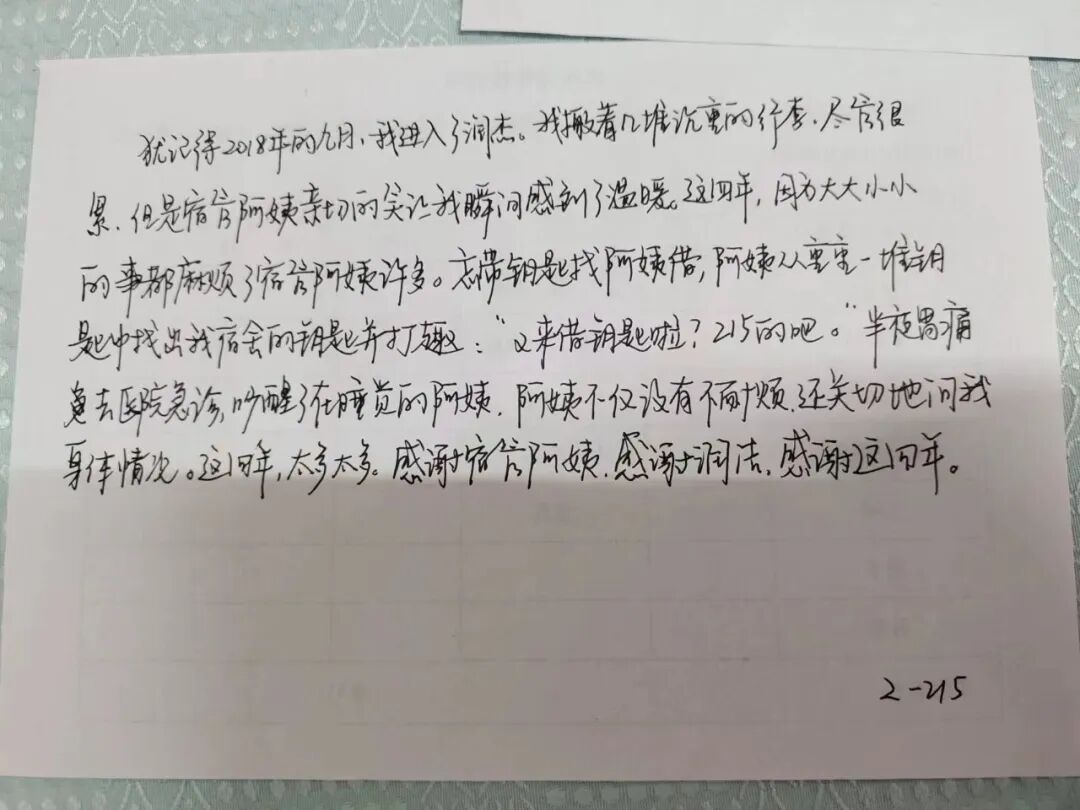 犹记得2018年的九月,我进入了润杰。我搬着几堆沉重的行李,尽管很
累,但是宿管阿姨亲切的笑让我瞬间感到了温暖。这四年,因为大大小小
的事都麻烦了宿管阿姨许多。忘带钥匙找阿姨借,阿姨从重重一堆钥
匙中找出我宿舍的钥匙并打趣:“又来借钥匙啦?215的吧。”半夜胃痛
去医院急诊,吵醒了在睡觉的阿姨,阿姨不仅没有不耐烦,还关切地问我
身体情况。这四年,太多太多。感谢宿管阿姨,感谢润洁,感谢这四年。
2-215